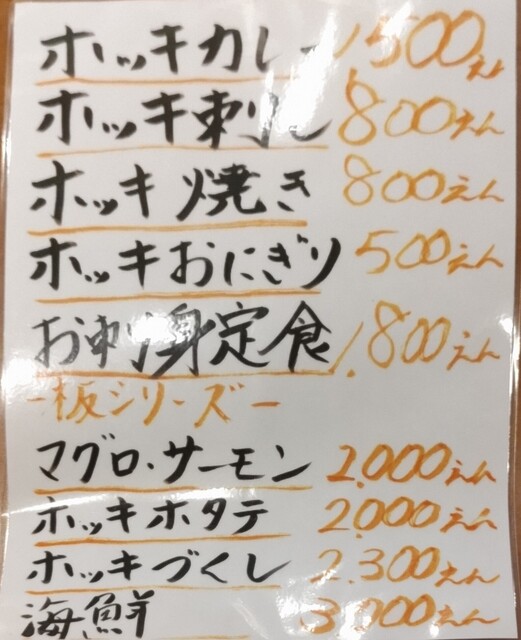 ホッキカレー 1,500えん
ホッキ刺し 800えん
ホッキ焼き 800えん
ホッキおにぎり 500えん
お刺身定食 1,800えん
-板シリーズ-
マグロ・サーモン 2,000えん
ホッキホタテ 2,000えん
ホッキづくし 2,300えん
海鮮 3,000えん